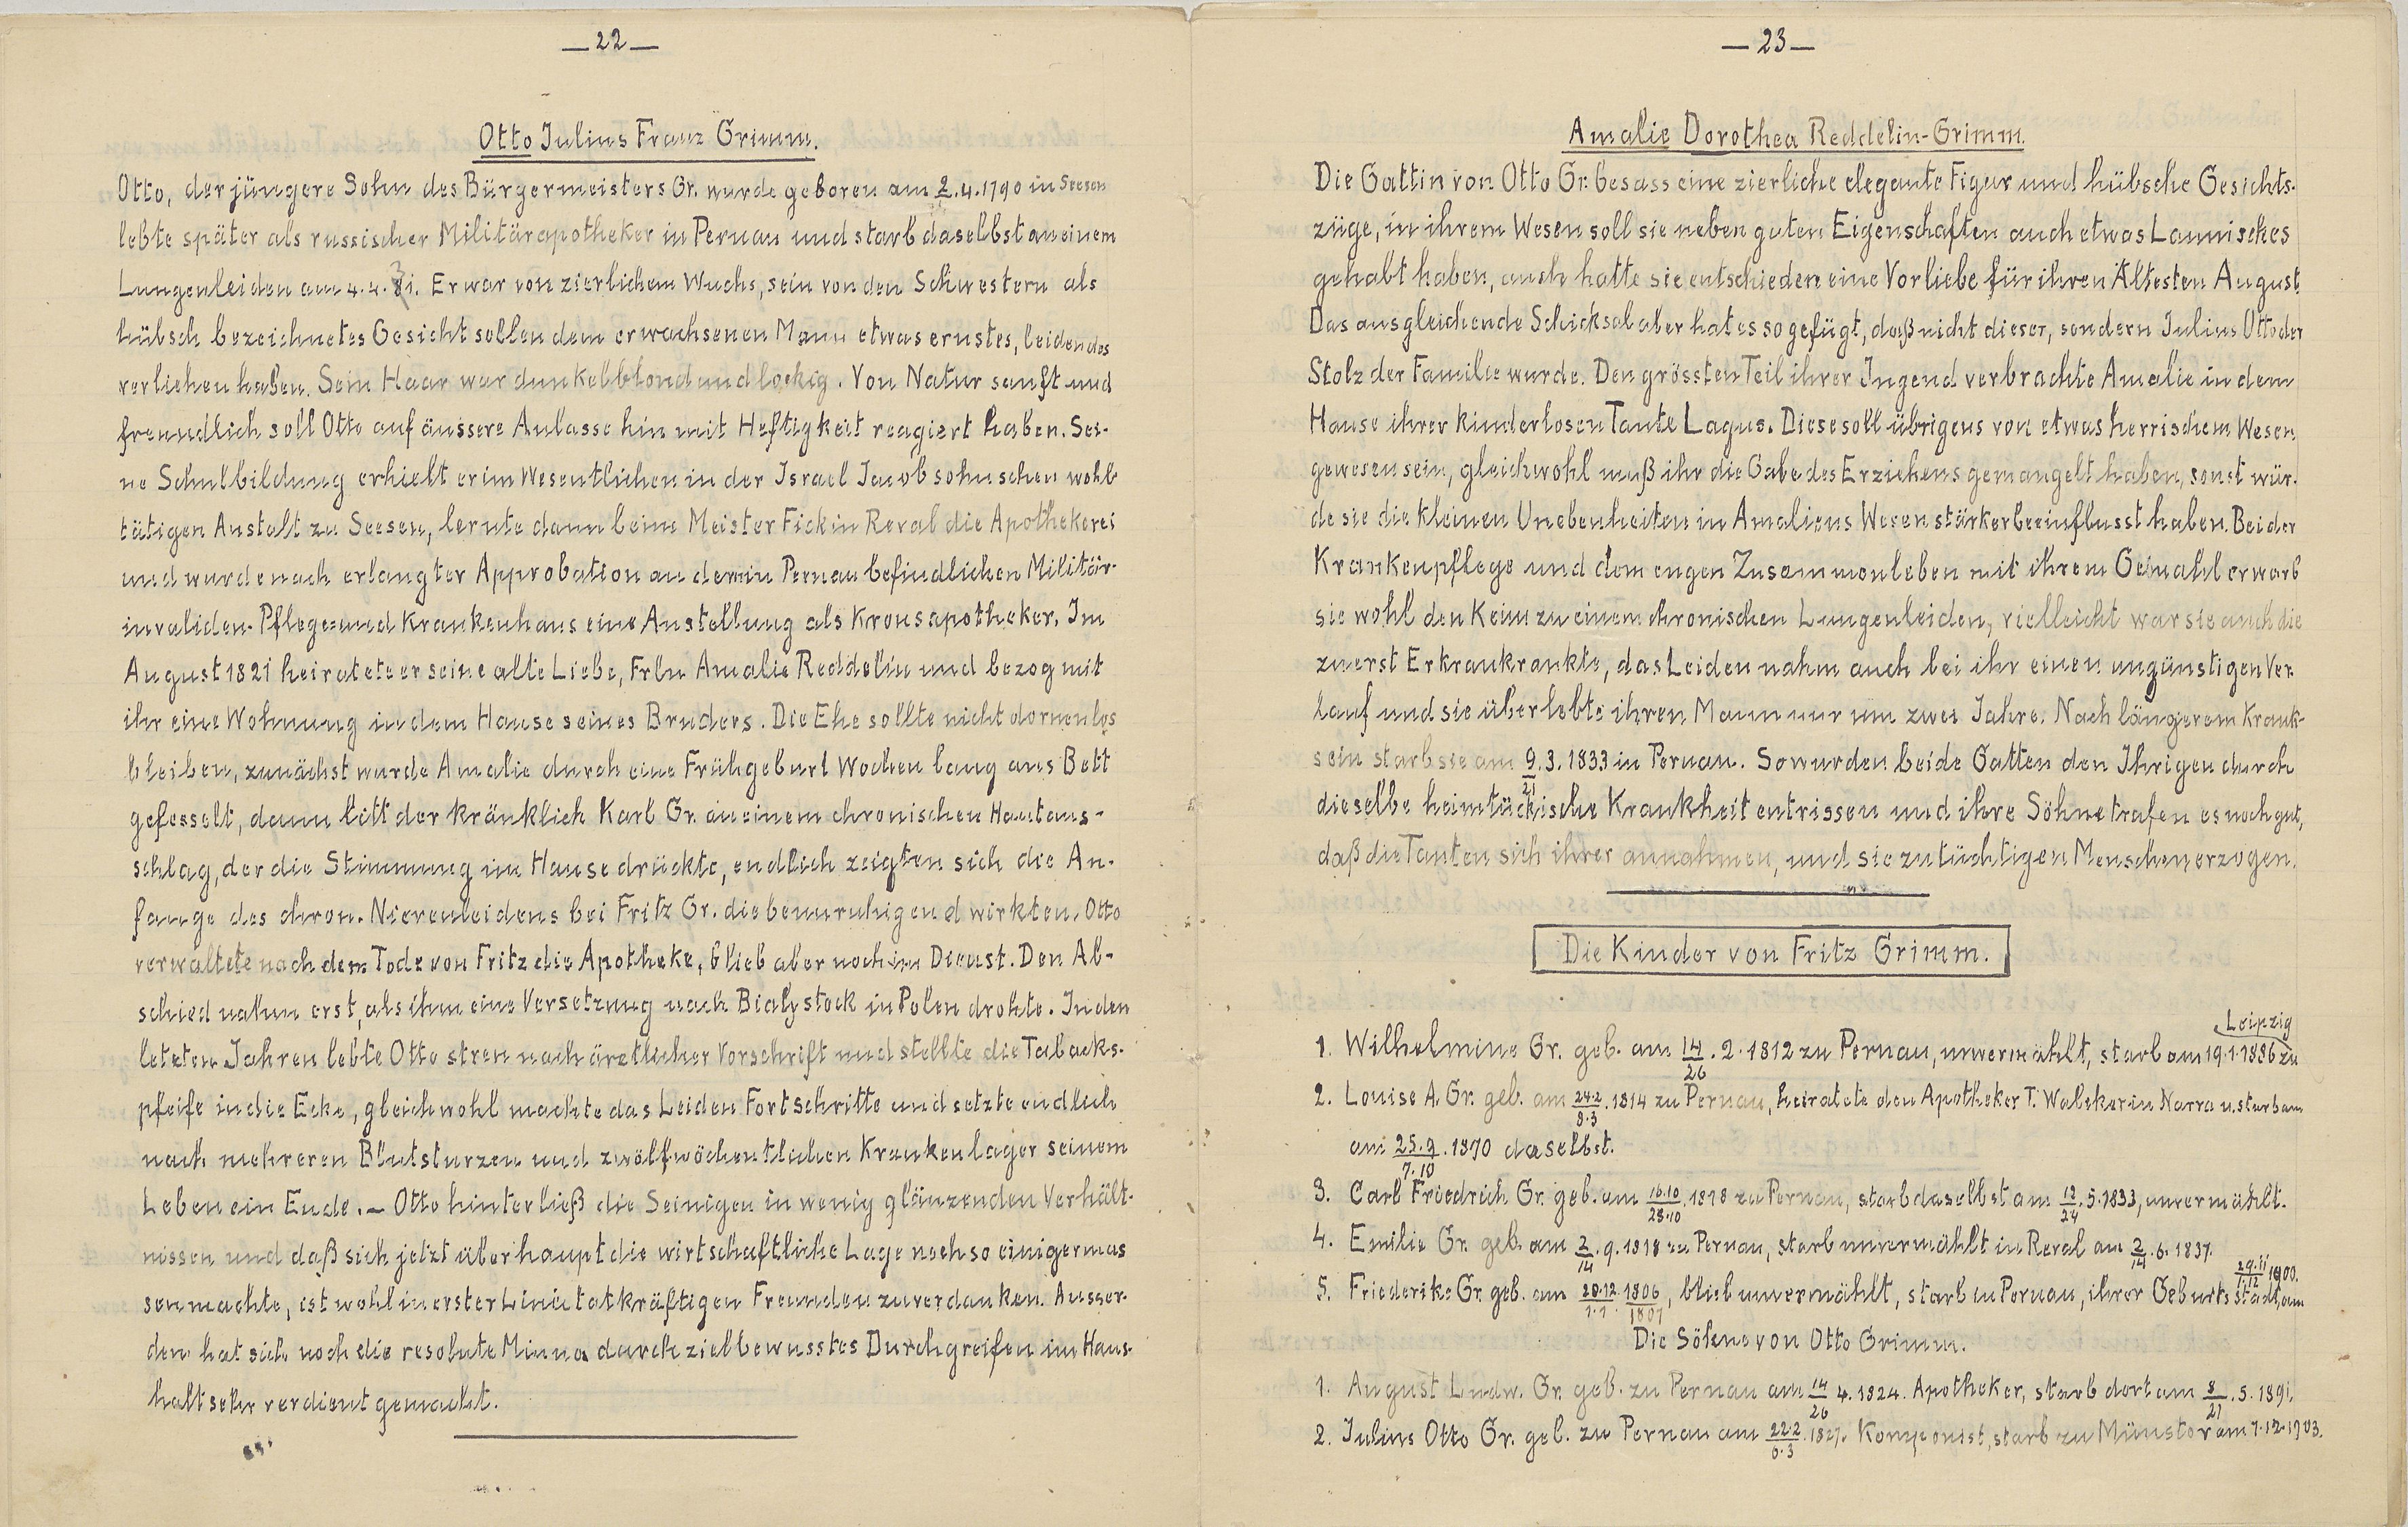 —22—
Otto Julius Franz Grimm.
Otto, der jüngere Sohn des Bürgermeisters Gr. wurde geboren am 2.4.1790 in Seesen
lebte später als russischer Militärapotheker in Pernau und starb daselbst an einem
Lungenleiden am 4.4.31. Er war von zierlichem Wuchs, sein von den Schwestern als
hübsch bezeichnetes Gesicht sollen dem erwachsenen Mann etwas ernstes, leidendes
verliehen haben. Sein Haar war dunkelblond und lockig. Von Natur sanft und
freundlich soll Otto auf äussere Anlasse hin mit Heftigkeit reagiert haben. Sei-
ne Schulbildung erhielt er im Wesentlichen in der Israel Jacob sohnschen wohl-
tätigen Anstalt zu Seesen, lernte dann beim Meister Fick in Reval die Apothekerei
und wurde nach erlangter Approbation an dem in Pernau befindlichen Militär-
invaliden-Pflege=und Krankenhaus eine Anstellung als Kronsapotheker. Im
August 1821 heiratete er seine alte Liebe, Frln Amalie Reddelin und bezog mit
ihr eine Wohnung in dem Hause seines Bruders. Die Ehe sollte nicht dornenlos
bleiben, zunächst wurde Amalie durch eine Frühgeburt Wochen lang ans Bett
gefesselt, dann litt der kränklich Karl Gr. an einem chronischen Hautaus-
schlag, der die Stimmung im Hause drückte, endlich zeigten sich die An-
fange des chron. Nierenleidens bei Fritz Gr. die beunruhigend wirkten. Otto
verwaltete nach dem Tode von Fritz die Apotheke, blieb aber noch im Dienst. Den Ab-
schied nahm erst, als ihm eine Versetzung nach Bialystock in Polen drohte. In den
letzten Jahren lebte Otto stren nach ärztlicher Vorschrift und stellte die Tabacks-
pfeife in die Ecke, gleichwohl machte das Leiden Fortschritte und setzte endlich
nach mehreren Blutsturzen und zwölfwöchentlichen Krankenlager seinem
Leben ein Ende. — Otto hinterließ die Seinigen in wenig glänzenden Verhält-
nissen und daß sich jetzt überhaupt die wirtschaftliche Lage noch so einigermas
sen machte, ist wohl in erster Linie tatkräftigen Freunden zu verdanken. Ausser-
den hat sich noch die resolute Minna durch zielbewusstes Durchgreifen im Haus-
halt sehr verdient gemacht.
—23—
Amalie Dorothea Reddelin-Grimm.
Die Gattin von Otto Gr. besass eine zierliche elegante Figur und hübsche Gesichts-
züge, in ihrem Wesen soll sie neben guten Eigenschaften auch etwas Launisches
gehabt haben, auch hatte sie entschieden eine Vorliebe für ihren Ältesten August.
Das ausgleichende Schicksal aber hat es so gefügt, daß nicht dieser, sondern Julius Otto der
Stolz der Familie wurde. Den grössten Teil ihrer Jugend verbrachte Amalie in dem
Hause ihrer kinderlosen Tante Lagus. Diese soll übrigens von etwas herrischem Wesen
gewesen sein, gleichwohl muß ihr die Gabe des Erziehens gemangelt haben, sonst wür-
de sie die kleinen Unebenheiten in Amaliens Wesen stärker beeinflusst haben. Bei der
Krankenpflege und dem engen Zusammenleben mit ihrem Gemahl erwarb
sie wohl den Keim zu einem chronischen Lungenleiden, vielleicht war sie auch die
zuerst Erkrankrankte, das Leiden nahm auch bei ihr einen ungünstigen Ver-
lauf und sie überlebte ihren Mann nur um zwei Jahre. Nach längerem Krank-
sein starb sie am 9/21.3.1833 in Pernau. So wurden beide Gatten den Ihrigen durch
dieselbe heimtückische Krankheit entrissen und ihre Söhne trafen es noch gut,
daß die Tanten sich ihrer annahmen, und sie zu tüchtigen Menschen erzogen.
Die Kinder von Fritz Grimm.
1. Wilhelmine Gr. geb. am 14/26.2.1812 zu Pernau, unvermählt, starb am 19.1.1886 zu Leipzig
2. Louise A. Gr. geb. am 24.2/8.3.1814 zu Pernau, heiratete den Apotheker T. Walcker in Narva u. starb am
am 25.9/7.10.1870 daselbst.
3. Carl Friedrich Gr. geb. am 16.10/28.10.1818 zu Pernau, starb daselbst am 12/24.5.1833, unvermählt.
4. Emilie Gr. geb. am 2/14.9.1818 zu Pernau, starb unvermählt in Reval am 2/14.6.1837.
5. Friederike Gr. geb. am 20.12/1.1.1806/1807, blieb unvermählt, starb in Pernau, ihrer Geburtsstadt, am 29.11/1.12 1900.
Die Söhne von Otto Grimm.
1. August Ludw. Gr. geb. zu Pernau am 14/26 4.1824. Apotheker, starb dort am 8/21.5.1891.
2. Julius Otto Gr. geb. zu Pernau am 22.2/6.3.1827. Komponist, starb zu Münster am 7.12.1903.